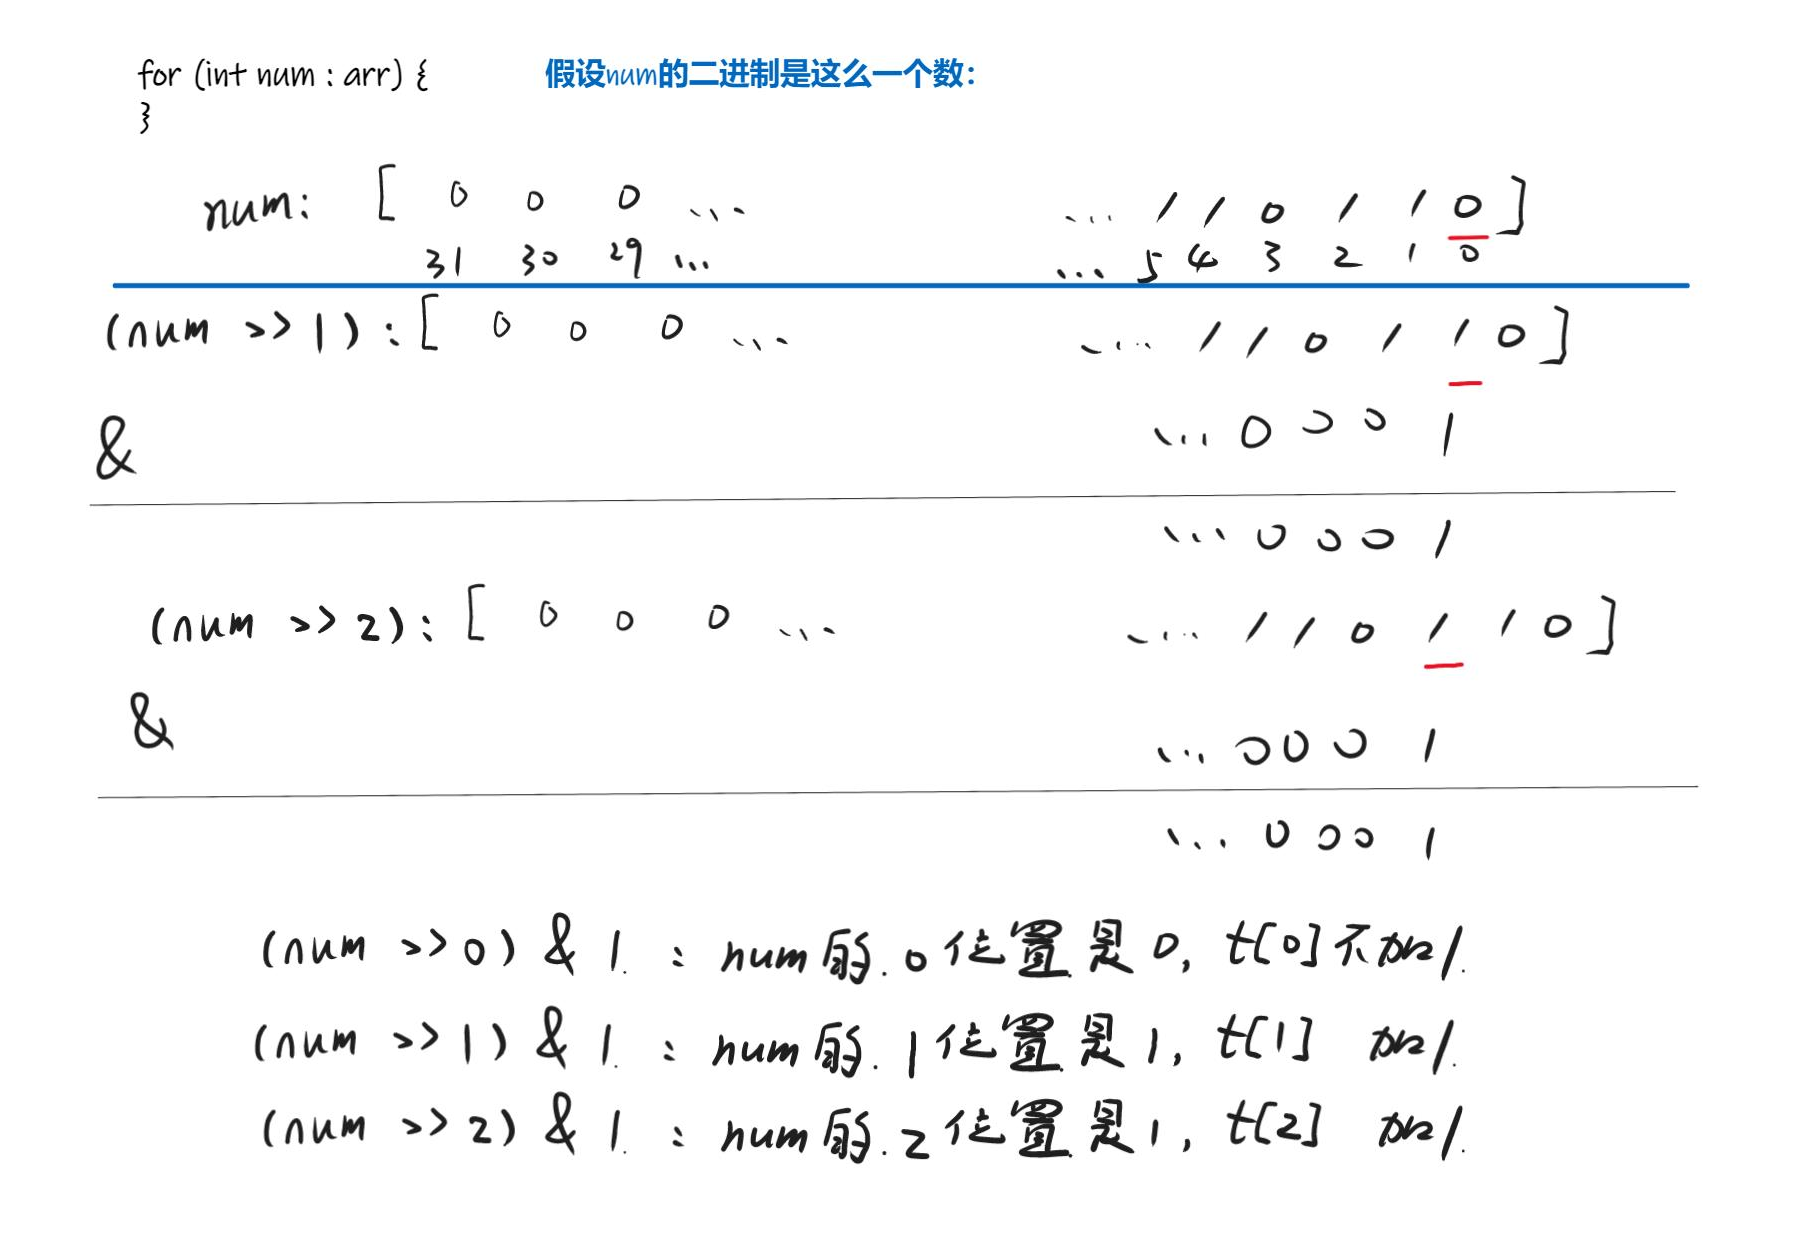 for (int num : arr) { 假设num的二进制是这么一个数：
}
num: [ 0 0 0 ... ... 1 1 0 1 1 0 ]
31 30 29 ... ... 5 4 3 2 1 0
(num >> 1) : [ 0 0 0 ... ... 1 1 0 1 1 0 ]
& ... 0 0 0 1
... 0 0 0 1
(num >> 2) : [ 0 0 0 ... ... 1 1 0 1 1 0 ]
& ... 0 0 0 1
... 0 0 0 1
(num >> 0) & 1. : num的.0位置是0, t[0]不加1.
(num >> 1) & 1. : num的.1位置是1, t[1] 加1.
(num >> 2) & 1. : num的.2位置是1, t[2] 加1.